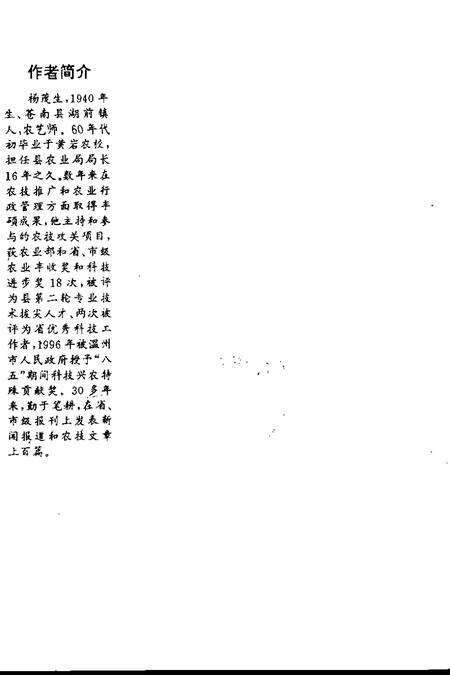 作者简介
杨茂生,1940年
生、苍南县湖前镇
人,农艺师。60年代
初毕业于黄岩农校,
担任县农业局局长
16年之久。数年来在
农技推广和农业行
政管理方面取得丰
硕成果,他主持和参
与的农技攻关项目,
获农业部和省、市级
农业丰收奖和科技
进步奖18次,被评
为县第二轮专业技
术拔尖人才、两次被
评为省优秀科技工
作者,1996年被温州
市人民政府授予“八
五”期间科技兴农特
殊贡献奖。30多年
来,勤于笔耕,在省、
市级报刊上发表新
闻报道和农技文章
上百篇。